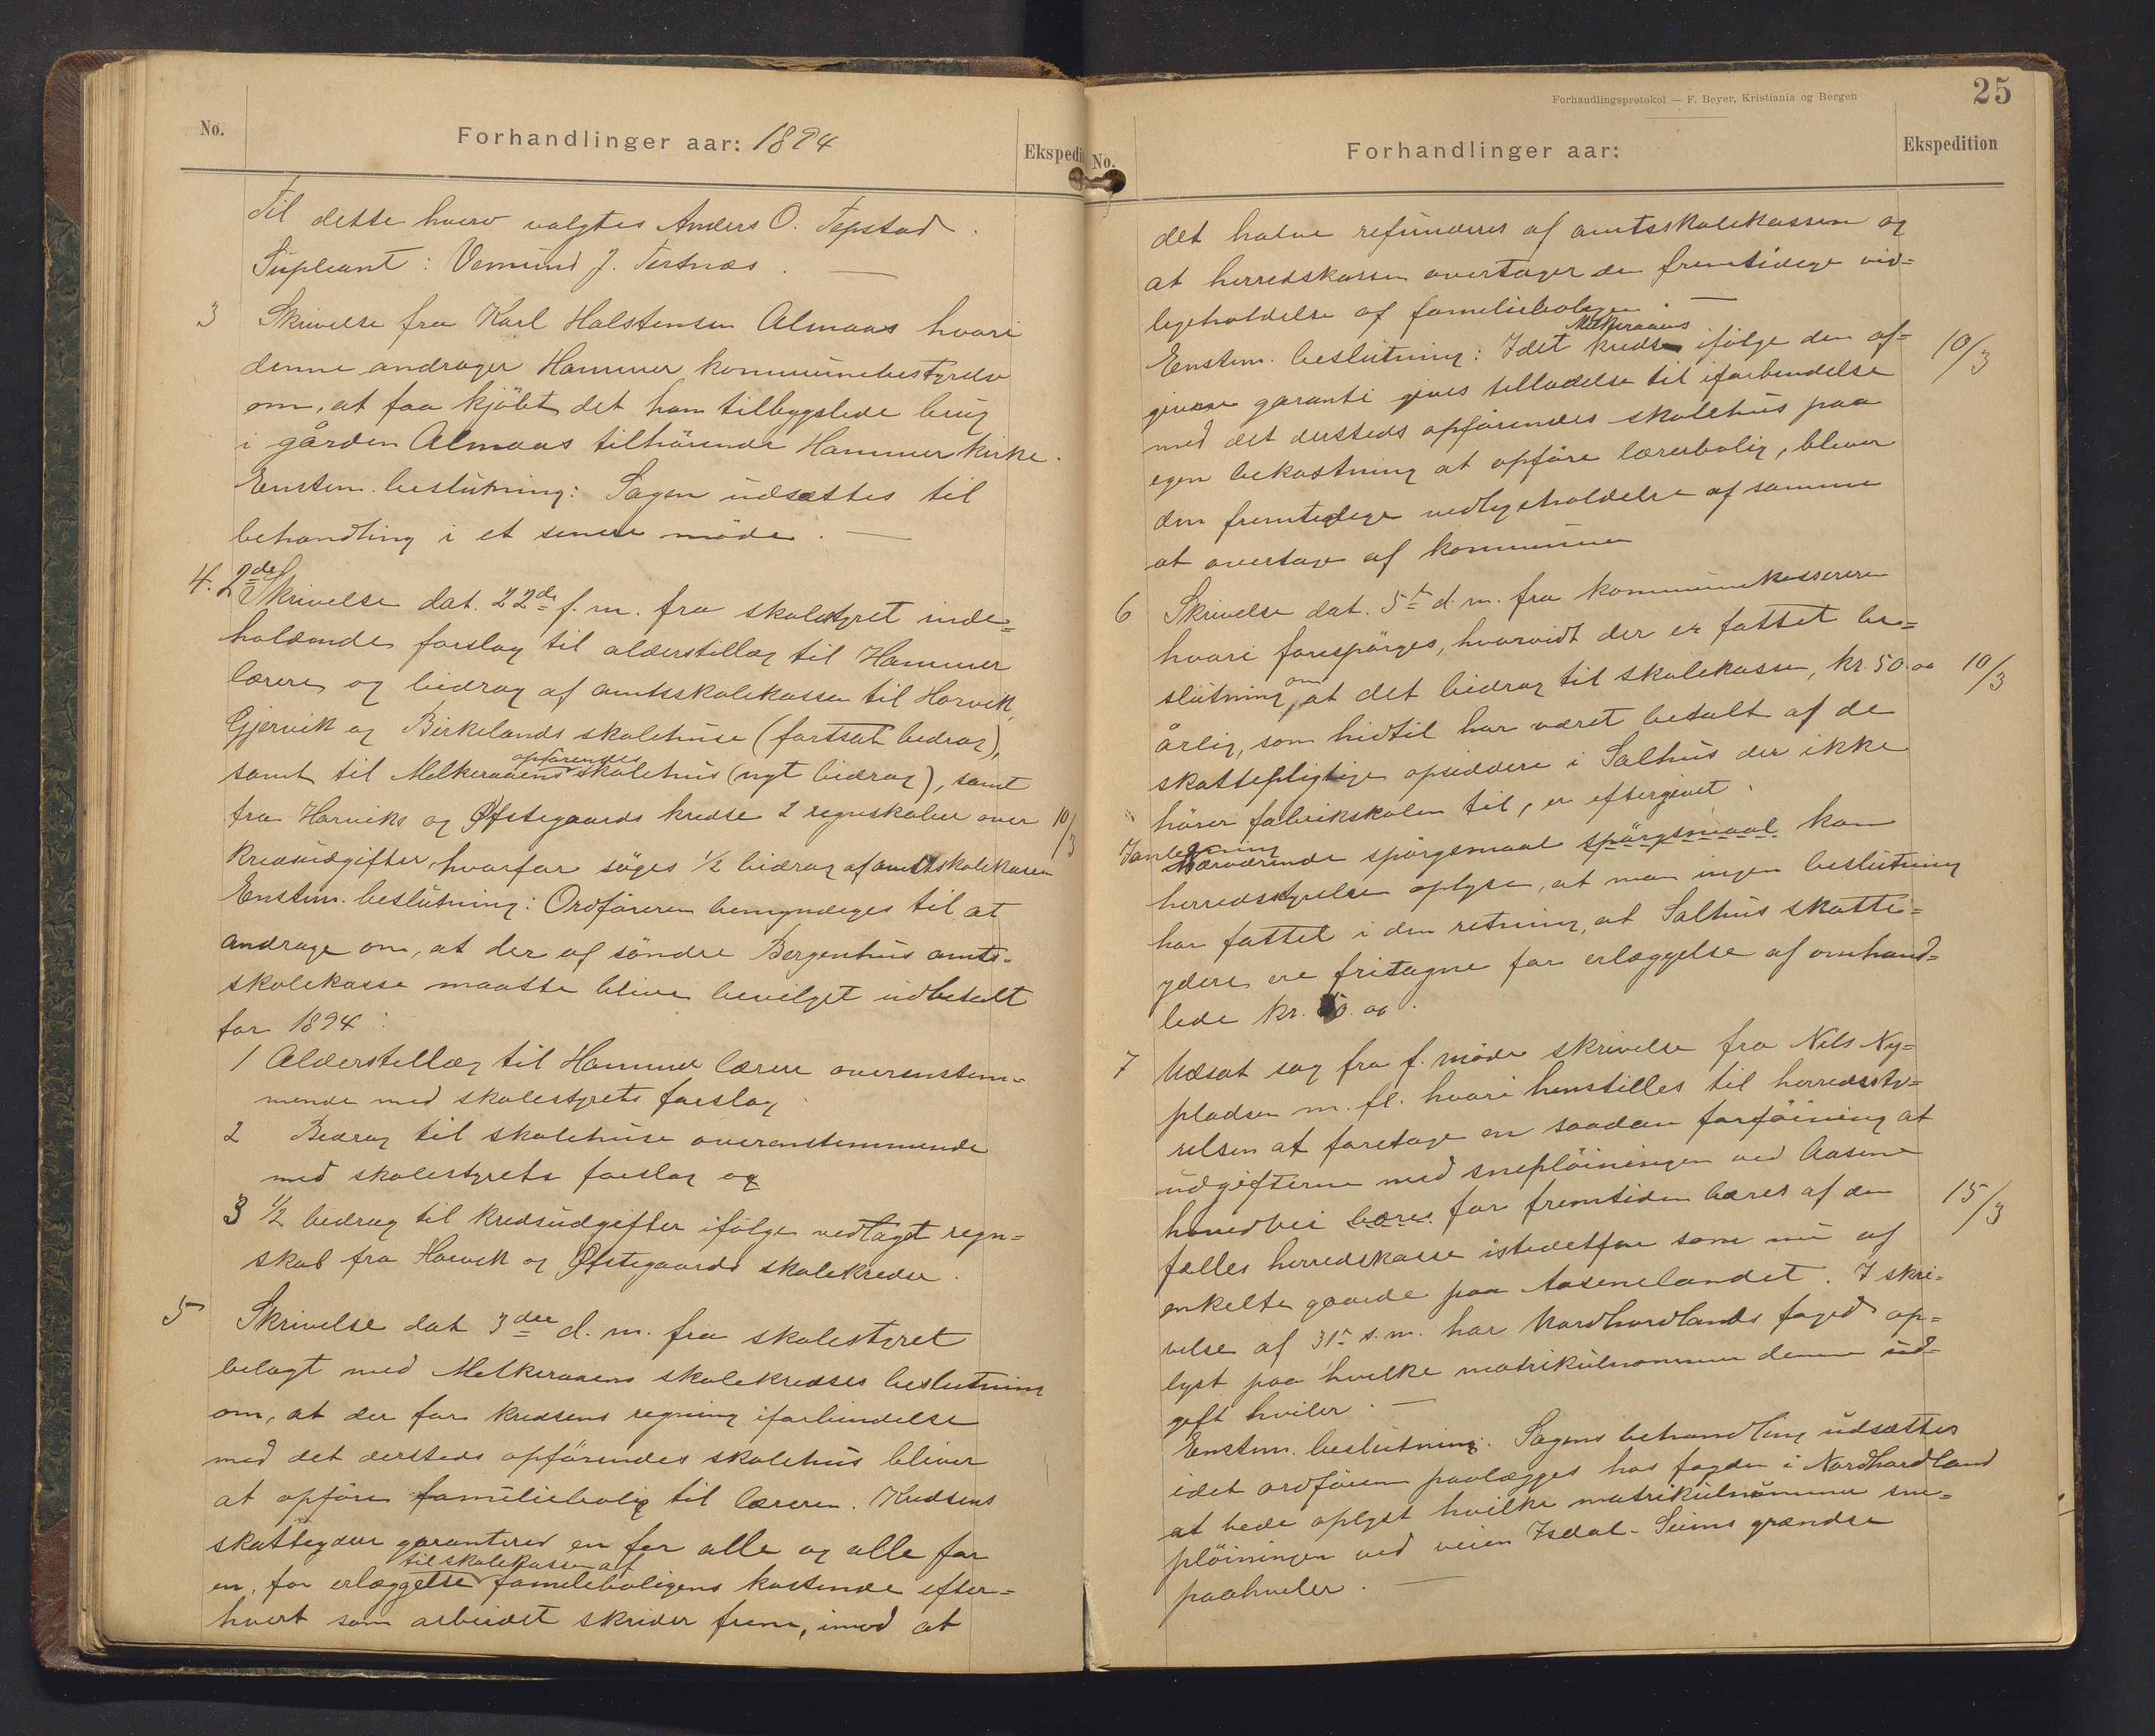 No.
Forhandlinger aar: 1894
Ekspedi
Til dette hverv valgtes Anders O. Tepstad.
Supleant: Vemund J. Tertnæs. —
3 Skrivelse fra Karl Halstensen Almaas hvori
denne andrager Hammer kommunebestyrelse
om, at faa kjöbt det ham tilbygslede brug
i gården Almaas tilhörende Hammer kirke.
Enstem. beslutning: Sagen udsættes til
behandling i et senere möde. —
4. 2de Skrivelse dat. 22de f. m. fra skolestyret inde=
holdende forslag til alderstillæg til Hammer
lærere og bidrag af amtsskolekassen til Horvik,
Gjervik og Birkelands skolehuse (fortsat bidrag),
opförendes
samt til Melkeraaens skolehus (nyt bidrag), samt
fra Horviks og Øfstegaards kredse 2 regnskaber over 10/3
kredsudgifter, hvorfor söges 1/2 bidrag af amtsskolekassen
Enstem. beslutning: Ordföreren bemyndiges til at
andrage om, at der af söndre Bergenhus amts-
skolekasse maatte blive bevilget udbetalt
for 1894:
1 Alderstillæg til Hammer lærere overenstem-
mende med skolestyrets forslag.
2 Bidrag til skolehuse overenstemmende
med skolestyrets forslag og
3 1/2 bidrag til kredsudgifter ifölge vedlagt regn=
skab fra Horvik og Øfstegaards skolekredse.
5 Skrivelse dat 3die d. m. fra skolestyret
belagt med Melkeraaens skolekredses beslutning
om, at der for kredsens regning iforbindelse
med det dersteds opförendes skolehus bliver
at opföre familiebolig til læreren. Kredsens
skatteydere garanterer en for alle og alle for
til skolekassen af
en, for erlæggelse familieboligens kostende efter=
hvert som arbeidet skrider frem, imod at
Forhandlingsprotokol — F. Beyer, Kristiania og Bergen
25
No.
Forhandlinger aar:
Ekspedition
det halve refunderes af amtsskolekassen og
at herredskassen overtager den fremtidige ved=
ligeholdelse af familieboligen. —
Melkeraaens
Enstem. beslutning: Idet kreds ifölge den af= 10/3
givne garanti gives tilladelse til iforbindelse
med det dersteds opförendes skolehus paa
egen bekostning at opföre lærerbolig, bliver
den fremtidige vedligeholdelse af samme
at overtage af kommunen
6 Skrivelse dat. 5te d. m. fra kommunekassereren
hvori forespörges, hvorvidt der er fattet be=
om
slutning, at det bidrag til skolekassen, kr. 50.00 10/3
årlig, som hidtil har været betalt af de
skattepligtige opsiddere i Salhus der ikke
hörer fabrikskolen til, er eftergivet.
I anledning
Nærværende spörgsmaal spörgsmaal kan
herredsstyrelsen oplyse, at man ingen beslutning
har fattet i den retning, at Salhus skatte=
ydere ere fritagne for erlæggelse af omhand=
lede kr. 50.00.
7 Udsat sag fra f. möde skrivelse fra Nils Ny=
pladsen m. fl. hvori henstilles til herredssty=
relsen at foretage en saadan forföining at
udgifterne med sneplöiningen ved Aasene
hovedvei bæres for fremtiden bæres af den 15/3
fælles herredskasse istedetfor som nu af
enkelte gaarde paa Aasenelandet. I skri=
velse af 31te s. m. har Nordhordlands foged op=
lyst paa hvilke matrikulnummer denne ud-
gift hviler. —
Enstem. beslutning: Sagens behandling udsættes
idet ordföreren paalægges hos fogden i Nordhordland
at bede oplyst hvilke matrikulnummer sne=
plöiningen ved veien Isdal - Seims grændse
paahviler. —